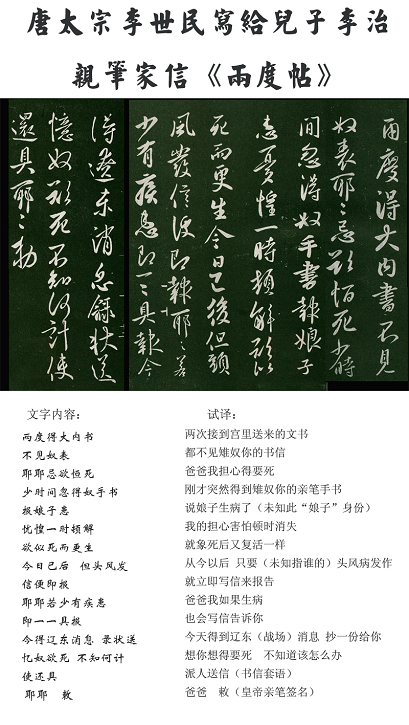 唐太宗李世民寫給兒子李治
親筆家信《兩度帖》
兩度得大内書不見
奴表耶〻忌欲恒死少時
間忽得奴手書報娘子
患憂惶一時頓解欲似
死而更生今日已後但頭
風發信便即報耶〻若
少有疾患即一〻具報今
得遼東消息錄狀送
憶奴欲死不知何計使
還具耶〻敕
文字内容：
两度得大内书
不见奴表
耶耶忌欲恒死
少时间忽得奴手书
报娘子患
忧惶一时顿解
欲似死而更生
今日已后 但头风发
信便即报
耶耶若少有疾患
即一一具报
今得辽东消息 录状送
忆奴欲死 不知何计
使还具
耶耶 敕
试译：
两次接到宫里送来的文书
都不见雉奴你的书信
爸爸我担心得要死
刚才突然得到雉奴你的亲笔手书
说娘子生病了（未知此“娘子”身份）
我的担心害怕顿时消失
就象死后又复活一样
从今以后 只要（未知指谁的）头风病发作
就立即写信来报告
爸爸我如果生病
也会写信告诉你
今天得到辽东（战场）消息 抄一份给你
想你想得要死 不知道该怎么办
派人送信（书信套语）
爸爸 敕（皇帝亲笔签名）